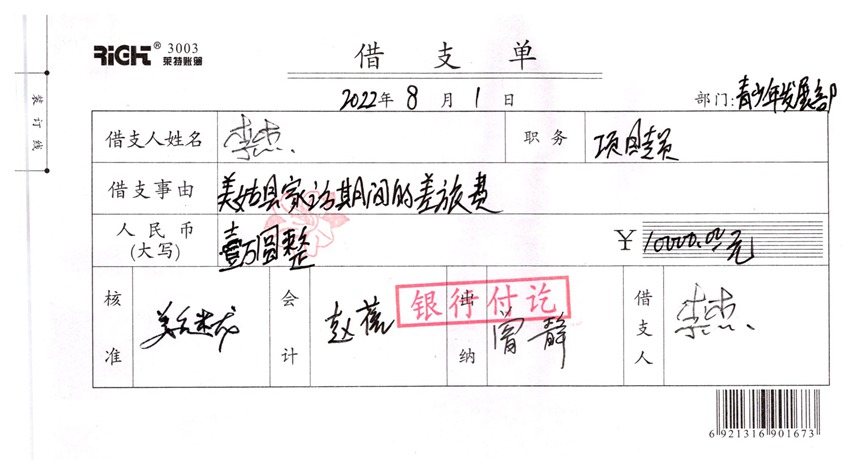 RiGHT® 3003
莱特账簿
借支单
2022年8月1日
部门:青少年发展部
装订线
借支人姓名
李杰
职务
项目专员
借支事由
美姑县家访期间的差旅费
人民币
(大写)
壹万圆整
¥10000.00元
核准
会计
赵蓓
出纳
曾静
借支人
李杰
银行付讫
6 921316 901673